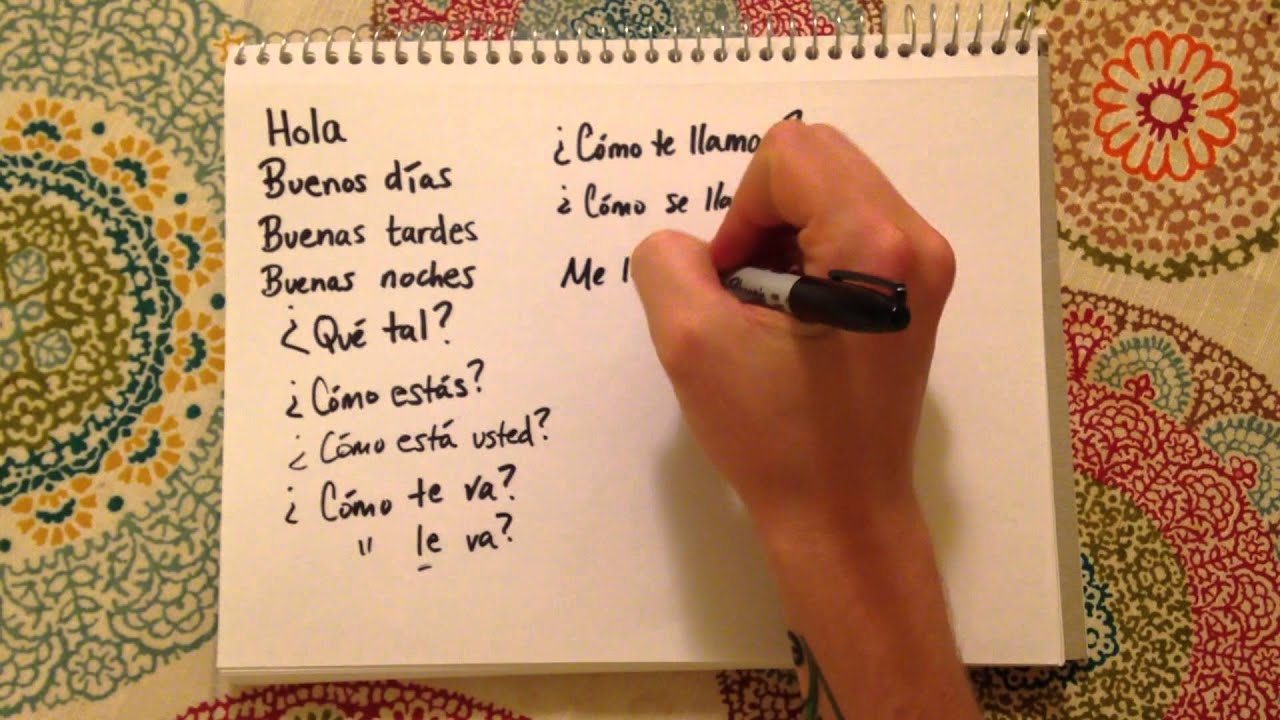 Hola
Buenos días
Buenas tardes
Buenas noches
¿Qué tal?
¿Cómo estás?
¿Cómo está usted?
¿Cómo te va?
" le va?
¿Cómo te
¿Cómo se
Me